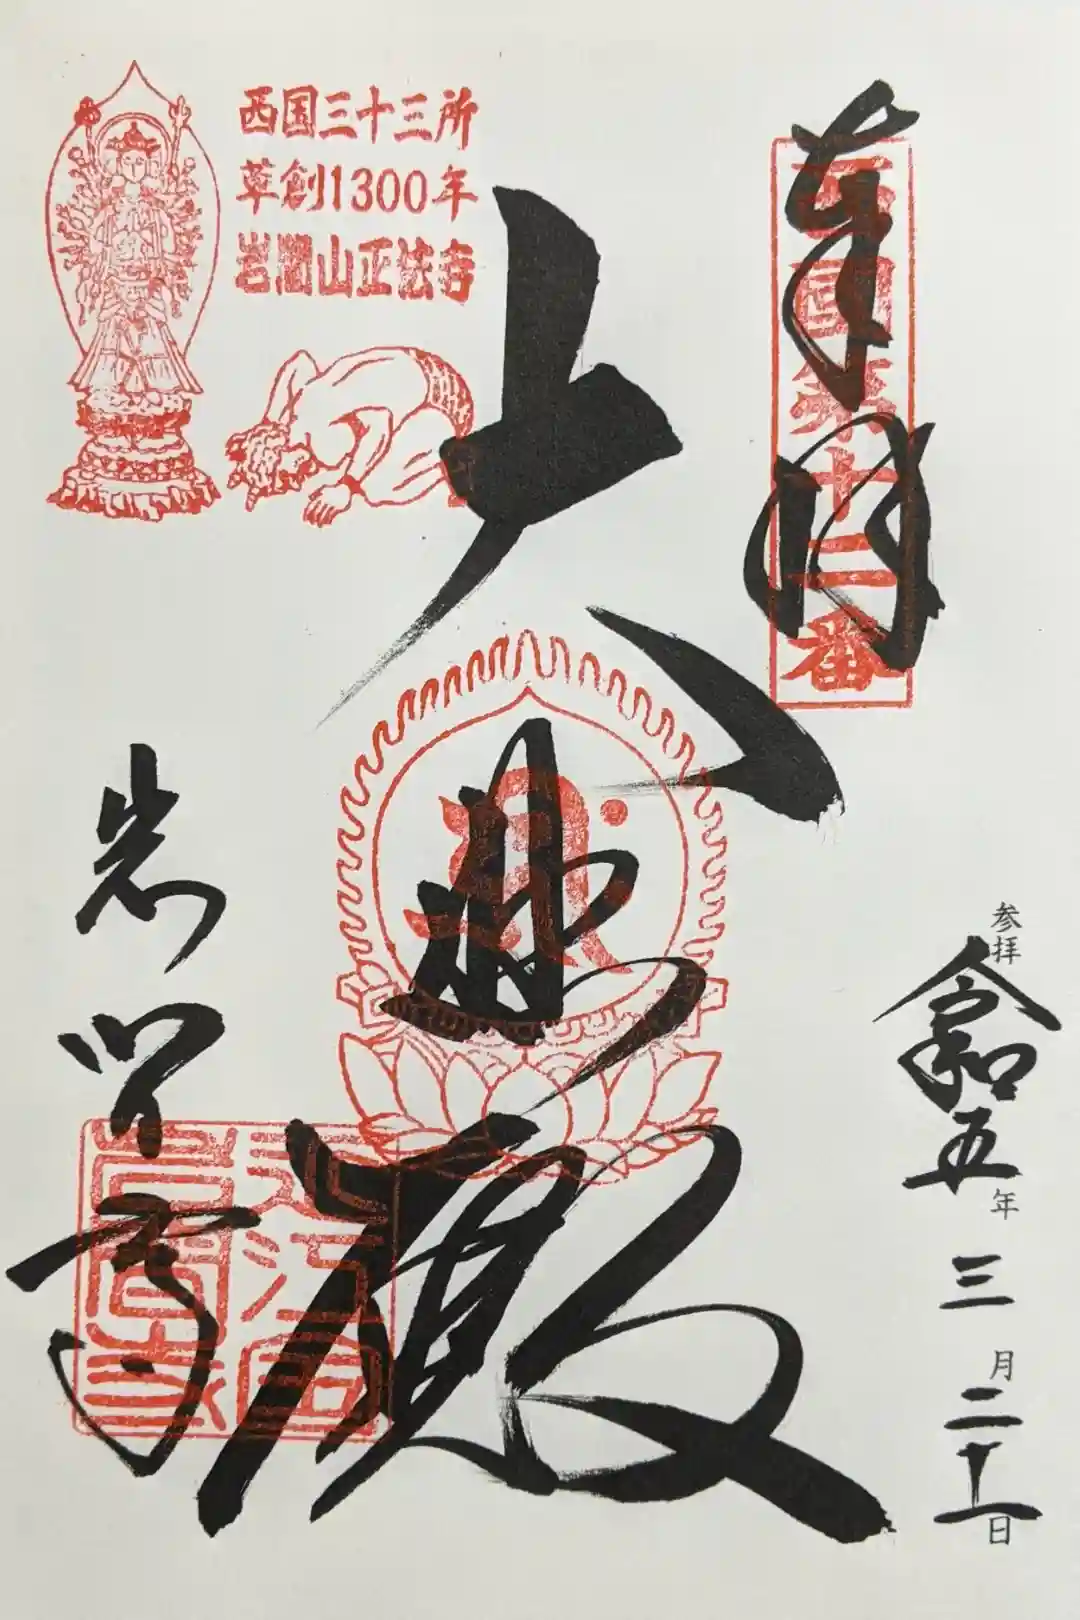 奉拝
西國第十二番
大悲殿
岩間寺
西国三十三所
草創1300年
岩間山正法寺
近江国
岩間寺
参拝
令和五年三月二十一日